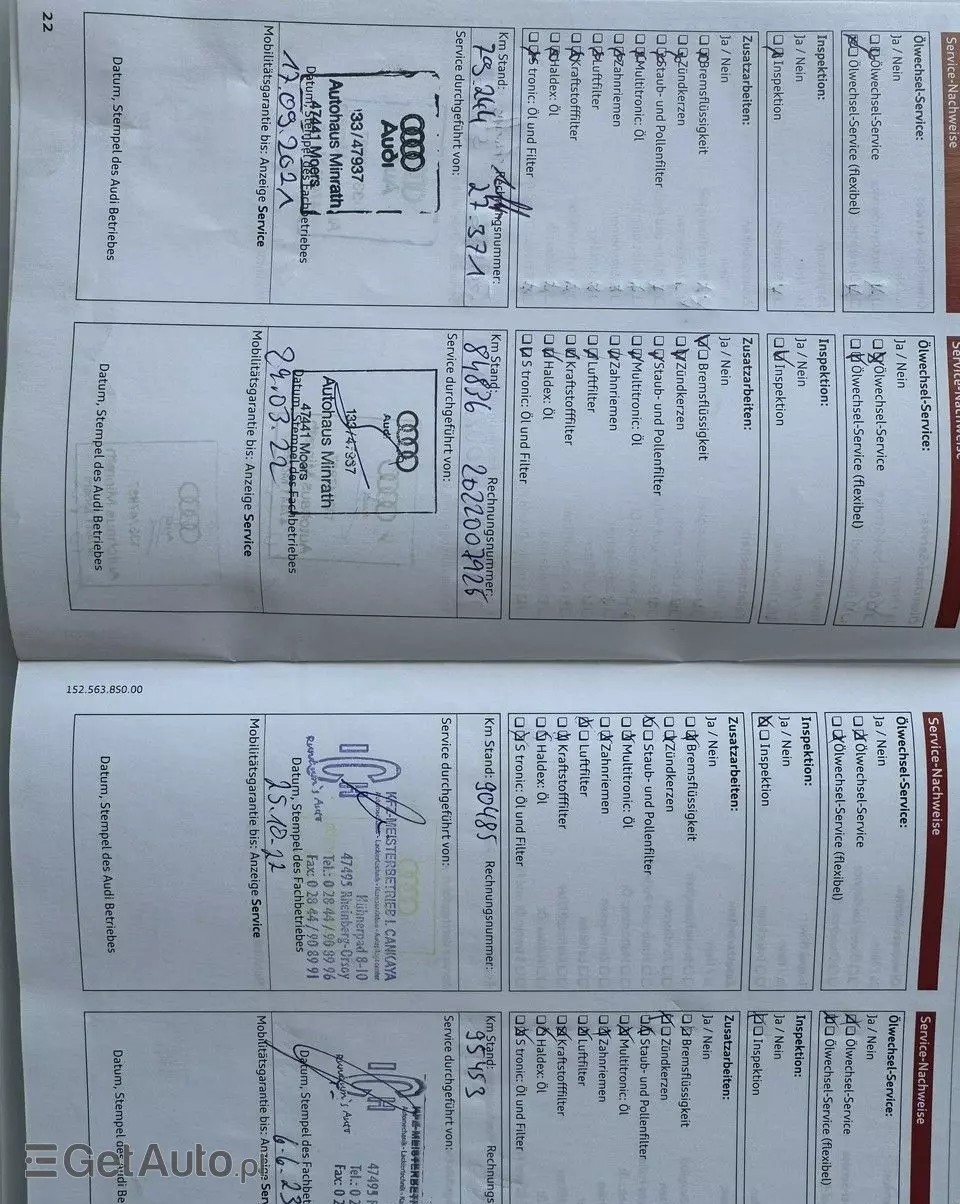 Service-Nachweise
Ölwechsel-Service:
Ja / Nein
Ölwechsel-Service
Ölwechsel-Service (flexibel)
Inspektion:
Ja / Nein
Inspektion
Zusatzarbeiten:
Ja / Nein
Bremsflüssigkeit
Zündkerzen
Staub- und Pollenfilter
Multitronic: Öl
Zahnriemen
Luftfilter
Kraftstofffilter
Haldex: Öl
S tronic: Öl und Filter
Km Stand: Rechnungsnummer:
79.244 27.371
Service durchgeführt von:
Audi
133/47937
Autohaus Minrath
47441 Moers
Datum, Stempel des Fachbetriebes
17.09.2021
Mobilitätsgarantie bis: Anzeige Service
Datum, Stempel des Audi Betriebes
22
Service-Nachweise
Ölwechsel-Service:
Ja / Nein
Ölwechsel-Service
Ölwechsel-Service (flexibel)
Inspektion:
Ja / Nein
Inspektion
Zusatzarbeiten:
Ja / Nein
Bremsflüssigkeit
Zündkerzen
Staub- und Pollenfilter
Multitronic: Öl
Zahnriemen
Luftfilter
Kraftstofffilter
Haldex: Öl
S tronic: Öl und Filter
Km Stand: Rechnungsnummer:
84836 2022007926
Service durchgeführt von:
Audi
133/47937
Autohaus Minrath
47441 Moers
Datum, Stempel des Fachbetriebes
24.03.22
Mobilitätsgarantie bis: Anzeige Service
Datum, Stempel des Audi Betriebes
152.563.850.00
Service-Nachweise
Ölwechsel-Service:
Ja / Nein
Ölwechsel-Service
Ölwechsel-Service (flexibel)
Inspektion:
Ja / Nein
Inspektion
Zusatzarbeiten:
Ja / Nein
Bremsflüssigkeit
Zündkerzen
Staub- und Pollenfilter
Multitronic: Öl
Zahnriemen
Luftfilter
Kraftstofffilter
Haldex: Öl
S tronic: Öl und Filter
Km Stand: 90485 Rechnungsnummer:
Service durchgeführt von:
KFZ-MEISTERBETRIEB I. CANKAYA
Kuhnerpad 8-10
47495 Rheinberg-Orsoy
Tel.: 0 28 44 / 90 89 96
Fax: 0 28 44 / 90 89 91
Datum, Stempel des Fachbetriebes
Mobilitätsgarantie bis: Anzeige Service
Datum, Stempel des Audi Betriebes
Service-Nachweise
Ölwechsel-Service:
Ja / Nein
Ölwechsel-Service
Ölwechsel-Service (flexibel)
Inspektion:
Ja / Nein
Inspektion
Zusatzarbeiten:
Ja / Nein
Bremsflüssigkeit
Zündkerzen
Staub- und Pollenfilter
Multitronic: Öl
Zahnriemen
Luftfilter
Kraftstofffilter
Haldex: Öl
S tronic: Öl und Filter
Km Stand: Rechnungs
95453
Service durchgeführt von:
47495
Tel.: 0 2
Fax: 0 2
Datum, Stempel des Fachbet
6-6-23
Mobilitätsgarantie bis: Anzeige Ser
Datum, Stempel des Audi Be
GetAuto.pl